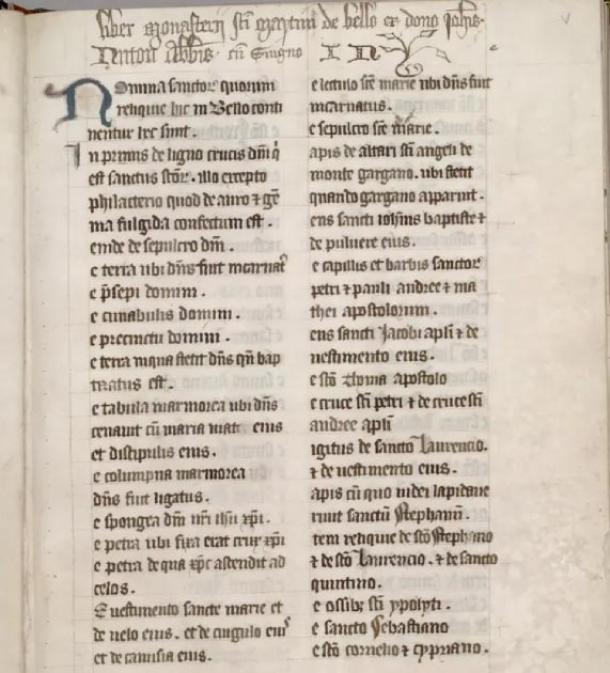 liber monasterij sti Martini de bello ex dono Johis
Nuton Abbis. cu Signo I N
Nomina sanctor quorum
reliquie hic in Bello conti
nentur hec sunt.
In primis de ligno crucis dni q
est sanctus stor. illo excepto
philacterio quod de auro ⁊ ge
ma fulgida confectum est.
einde de sepulcro dni.
e terra ubi dns fuit incarnat
e psepi domini.
e cunabulis domini.
e precinctu domini.
e terra in qua stetit dns qn bap
tizatus est.
e tabula marmorea ubi dns
cenauit cu maria matr eius
et discipulis eius.
e columpna marmorea
dns fuit ligatus.
e spongea dni nri ihu xpi.
e petra ubi fixa erat crux xpi
e petra de qua xpc ascendit ad
celos.
E uestimento sancte marie et
de uelo eius. et de cingulo eius
et de camisia eius.
e lectulo sce marie ubi dns fuit
incarnatus.
e sepulcro sce marie.
apis de altari sti angeli de
monte gargano. ubi stetit
quando gargano apparuit.
ens sancti iohnis baptiste ⁊
de puluere eius.
e capillis et barbis sanctor
petri ⁊ pauli andree ⁊ ma
thei apostolorum.
ens sancti Jacobi apli ⁊ de
uestimento eius.
e sto thoma apostolo
e cruce sti petri ⁊ de cruce sti
andree apli
igitus de sancto Laurencio.
⁊ de uestimento eius.
apis cu quo iudei lapidaue
runt sanctu Stephanu.
tem reliquie de sto Stephano
⁊ de sto Laurencio. ⁊ de sancto
quintino.
e ossib; sti ypolyti.
e sancto Sebastiano
e sto cornelio ⁊ cypriano.